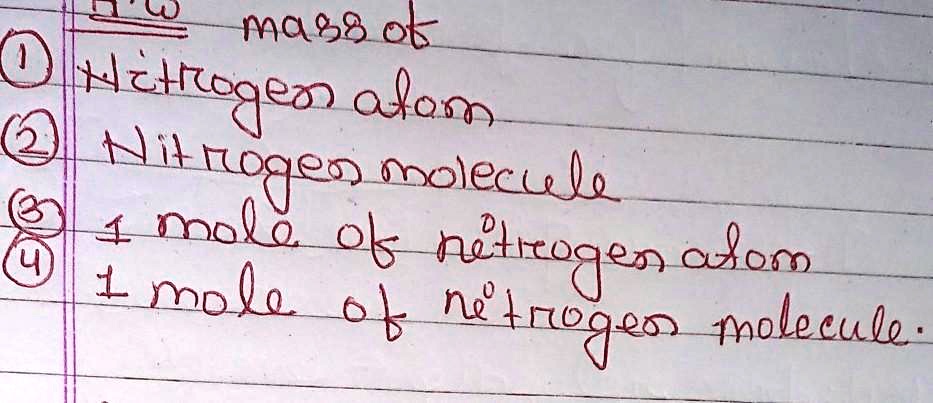 H.W mass of
① Nitrogen atom
② Nitrogen molecule
③ 1 mole of nitrogen atom
④ 1 mole of nitrogen molecule.